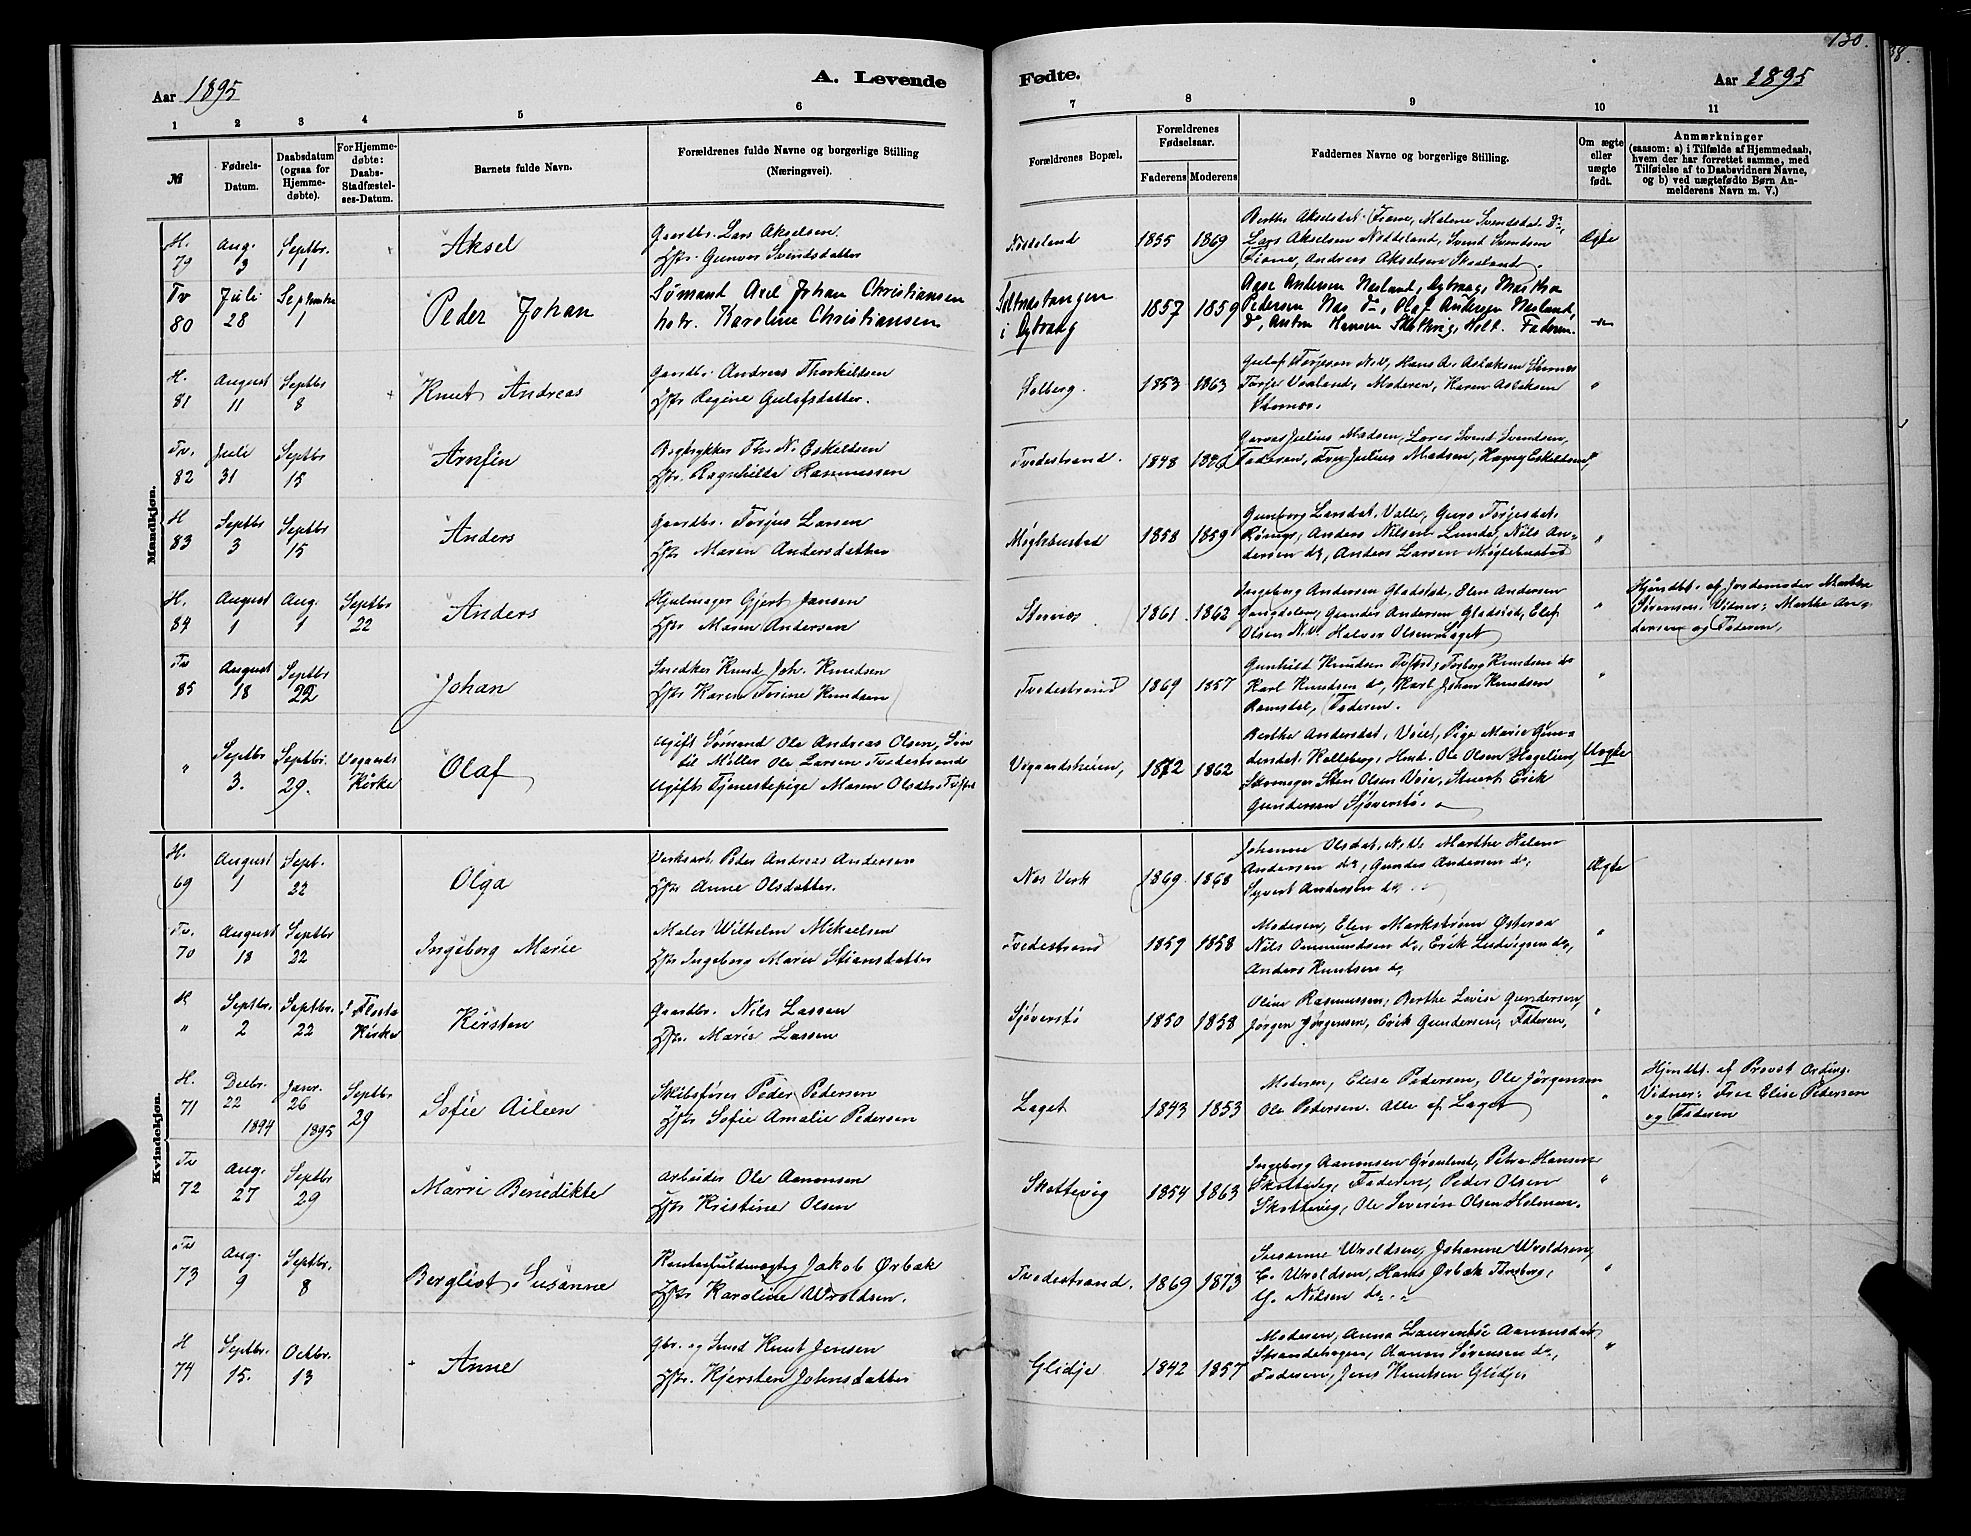 130.
38.
Aar 1895
A. Levende
Fødte.
Aar 1895
1 2 3 4 5 6 7 8 9 10 11
№
Fødsels-
Datum.
Daabsdatum
(ogsaa for
Hjemme-
døbte).
For Hjemme-
døbte:
Daabs-
Stadfæstel-
ses-Datum.
Barnets fulde Navn.
Forældrenes fulde Navne og borgerlige Stilling
(Næringsvei).
Forældrenes Bopæl.
Forældrenes
Fødselsaar.
Faderens Moderens
Faddernes Navne og borgerlige Stilling.
Om ægte
eller
uægte
født.
Anmærkninger
(saasom: a) i Tilfælde af Hjemmedaab,
hvem der har forrettet samme, med
Tilføielse af to Daabsvidners Navne,
og b) ved uægtefødte Børn An-
melderens Navn m. V.)
Mandkjøn.
H.
79
Aug.
3
Septbr.
1
Aksel
Gaardbr. Lars Akselsen
Hstr. Gunvor Svendsdatter
Nøddeland
1855
1869
Berthe Akselsdat. Fiane, Malene Svendsdat. do,
Lars Akselsen Nøddeland, Svend Svendsen
Fiane, Andreas Akselsen Skaaland.
Ægte
Tv
80
Juli
28
Septembr
1
Peder Johan
Sømand Axel Johan Christiansen
hstr. Karoline Christiansen
i Dybvaag
1857
1859
Aase Andersen Næsland, Dybvaag, Martha
Pedersen Næs do, Olaf Andersen Næsland,
do, Anton Hansen Skottevig, Holt. Faderen.
H.
81
August
11
Septbr
8
Knut Andreas
Gaardbr. Andreas Thorkildsen
Hstr. Regine Gulofsdatter.
Solberg.
1853
1863
Gulof Torjesen N.V., Hans A. Aslaksen Stornes
Torje Vaaland, Moderen, Karen Aslaksen
Stornes.
Tv.
82
Juli
31
Septbr
15
Arnfin
Bogtrykker Th. N. Eskeldsen
Hstr. Ragnhilde Rasmussen
Tvedestrand.
1848
Julius Madsen, Svend Svendsen,
Faderen, Fru Julius Madsen, Eskeldsen,
H
83
Septbr
3
Septbr
15
Anders
Gaardbr. Torjus Larsen
Hstr Maren Andersdatter
Møglebustad
1858
1859
Gunborg Larsdat. Valle, Guro Torjesdat.
Anders Nilsen Lunde, Nils An-
dersen do, Anders Larsen Møglebustad
H.
84
August
1
Aug.
1
Septbr
22
Anders
Hjulmager Gjert Jansen
Hstr. Maren Andersen
Stornes
1861
1862
Ingeborg Andersen Gladstad, Elen Andersen
Gunder Andersen Gladstad, Elef
Olsen N.V. Halvor Olsen Laget
Hjemdbt. af Jordemoder Marthe
Sørensen. Vidner: Marthe An-
dersen og Faderen,
Tv
85
August
18
Septbr
22
Johan
Snedker Knud Joh. Knudsen
Hstr Karen Torine Knudsen
Tvedestrand
1869
1857
Gunhild Knudsen Torborg Knudsen do
Karl Knudsen do, Karl Johan Knudsen
Ramsdal, Faderen.
"
Septbr
3.
Septbr.
29.
Vegaards
Kirke
Olaf
Ugift Sømand Ole Andreas Olsen, Søn
til Møller Ole Larsen Tvedestrand
Ugift Tjenestepige Maren Olsdtr.
Vegaardsheien,
1872
1862
Berthe Andersdat. Pige Marie Gun-
dersdat. Kalleberg, Hmd. Ole Olsen Hagelien,
Skomager Sten Olsen Erik
Gundersen Sjøverstø.
Uægte
Kvindekjøn.
H.
69
August
1
Sept.
22
Olga
Verksarb. Peder Andreas Andersen
Hstr. Anne Olsdatter.
Næs Verk
1869
1868
Johanne Olsdat. N.V. Marthe Helene
Andersen do, Gunder Andersen do,
Syvert Andersen do
Ægte
Tv.
70
August
13
Septbr
22
Ingeborg Marie
Maler Wilhelm Mikaelsen
Hstr Ingeborg Marie Stiansdatter
Tvedestrand
1859
1858
Moderen, Elen Markstrøm Østeraa
Nils Ommundsen do, Erik Ludvigsen do,
Anders Knutsen do
H
"
Septbr.
2
Septbr.
22
i Flosta
Kirke
Kirsten
Gaardbr. Nils Lassen
Hstr. Marie Lassen
Sjøverstø
1850
1858
Oline Rasmussen, Berthe Lovise Gundersen,
Jørgen Jørgensen, Erik Gundersen, Faderen,
H.
71
Decbr.
22
1894
Janr.
26
1895
Septbr
29
Sofie Aileen
Skibsfører Peder Pedersen
Hstr Sofie Amalie Pedersen
Laget
1843
1853
Moderen, Elise Pedersen, Ole Jørgensen
Ole Pedersen. Alle af Laget
Hjemdbt. af Provst Arding.
Vidner: Frue Elise Pedersen
og Faderen
Tv
72
Aug.
27
Septbr
29
Marri Benedikte
Arbeider Ole Aanonsen
Hstr Kristine Olsen
Skottevig
1854
1863
Ingeborg Aanonsen Grønlund, Petra Hansen
Skottevig, Faderen, Peder Olsen
Skottevig, Ole Severin Olsen Holmen.
Tv
73
Aug.
9
Septbr.
8
Bergliot Susanne
Kontorfuldmægtig Jakob Ørbæk
Hstr Karoline Wroldsen.
Tvedestrand.
1869
1873
Susanne Wroldsen, Johanne Wroldsen,
C. Wroldsen, Hans Ørbæk Tønsberg,
Nilsen do.
H
74
Septbr.
15.
Octbr.
13
Anne
Gbr. og Smed Knut Jensen
Hstr. Kjersten Johnsdatter
Glidje
1842
1857
Moderen, Anna Laurentse Aanonsdat.
Strandehagen, Aanon Sørensen do,
Faderen, Jens Knutsen Glidje